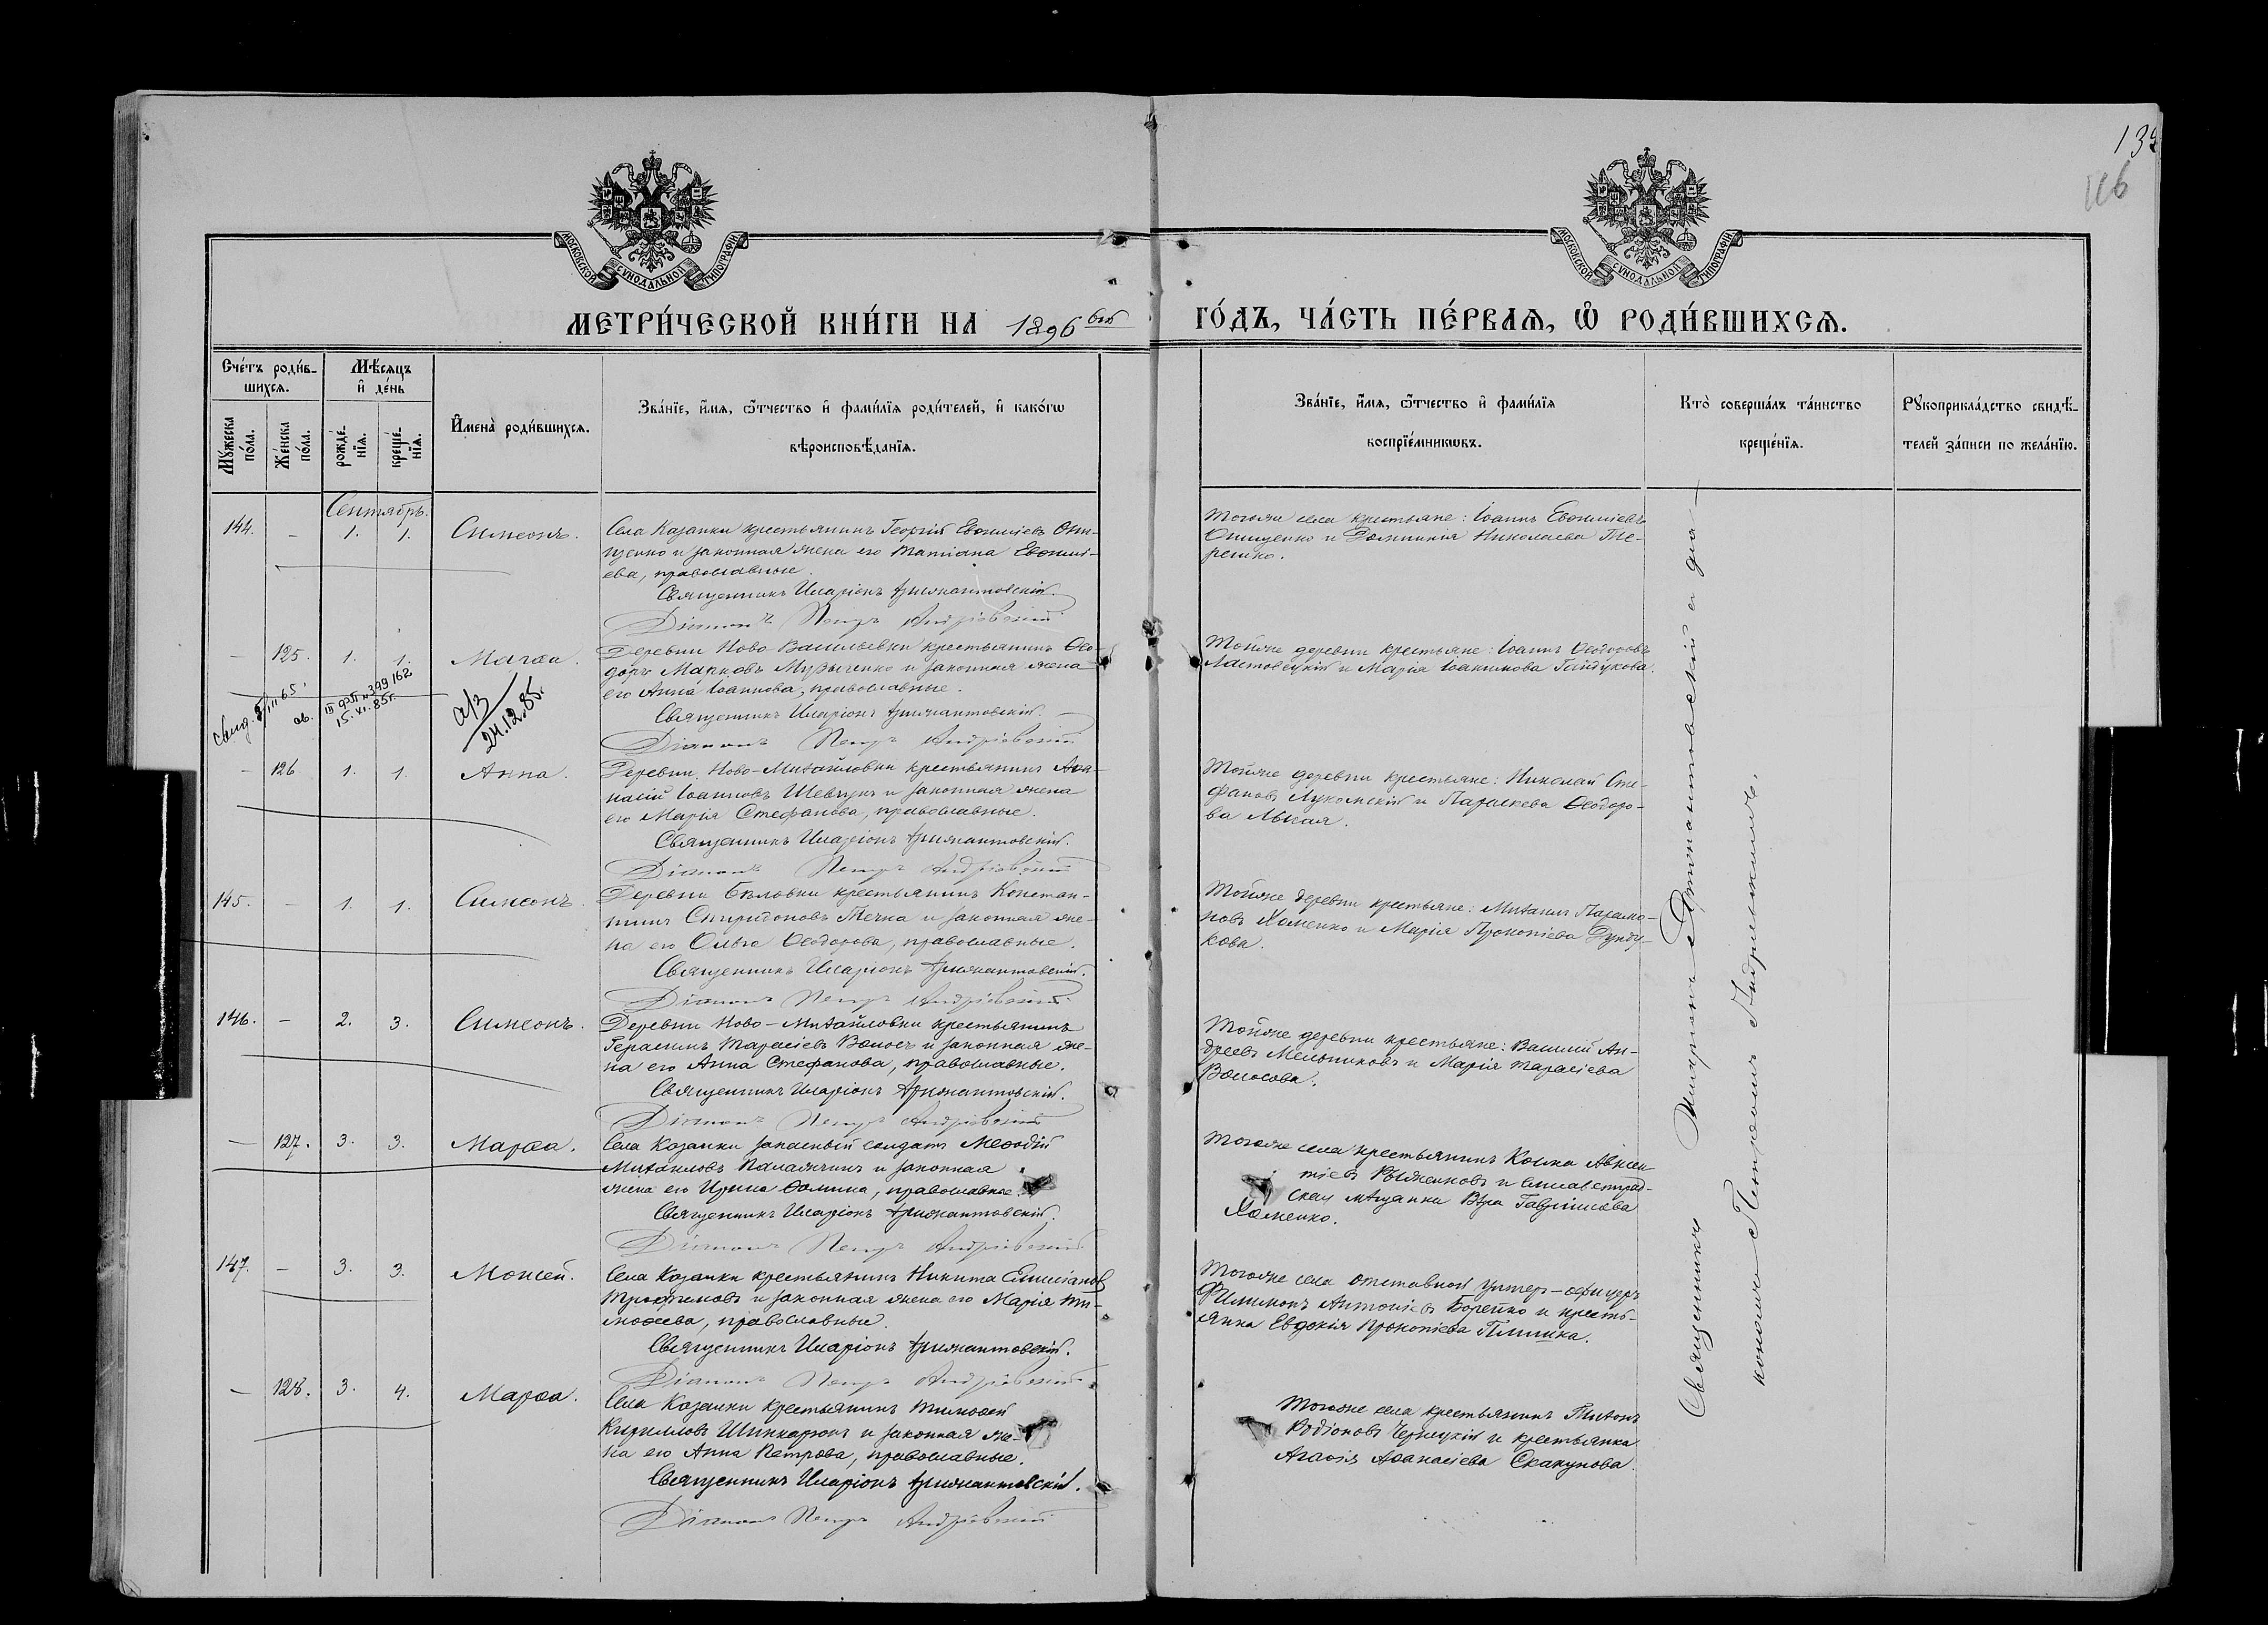 139
116
МОСКОВСКОЙ СѴНОДАЛЬНОЙ ТИПОГРАФІИ
МОСКОВСКОЙ СѴНОДАЛЬНОЙ ТИПОГРАФІИ
МЕТРИ́ЧЕСКОЙ КНИ́ГИ НА 1896 ГО́ДЪ, ЧА́СТЬ ПЕ́РВАѦ, Ѡ҆ РОДИ́ВШИХСѦ.
Сче́тъ роди́в-
шихсѧ.
Мѣ́сѧцъ
и҆ де́нь
Мꙋ́жеска
по́ла.
Же́нска
по́ла.
рожде́-
нїѧ.
креще́-
нїѧ.
И҆мена̀ роди́вшихсѧ.
Зва́нїе, и҆́мѧ, ѻ҆́тчество и҆ фами́лїѧ роди́телей, и҆ како́гѡ
вѣроисповѣ́данїѧ.
Зва́нїе, и҆́мѧ, ѻ҆́тчество и҆ фами́лїѧ
воспрїе́мникѡвъ.
Кто̀ соверша́лъ та́инство
креще́нїѧ.
Рꙋкоприкла́дство свидѣ́-
телей за́писи по жела́нїю.
Сентябрь.
144. – 1. 1. Симеонъ.
Села Казанки крестьянинъ Георгій Евѳиміевъ Они-
щенко и законная жена его Татіана Евѳимі-
ева, православные.
Священникъ Иларіонъ
Діаконъ Петръ Андріевскій
Тогоже села крестьяне: Іоаннъ Евѳиміевъ
Онищенко и Домникія Николаева Те-
решко.
– 125. 1. 1. Марѳа.
Деревни Ново Васильевки крестьянинъ Ѳео-
доръ Марковъ Музыченко и законная жена
его Анна Іоаннова, православные.
Священникъ Иларіонъ
Діаконъ Петръ Андріевскій
Тойже деревни крестьяне: Іоаннъ Ѳеодоровъ
Ластовецкій и Марія Іоакимова Гайдукова.
III 65
ав.
№ 399162
15.XI.85г.
а/з
24.12.85.
– 126 1. 1. Анна.
Деревни Ново-Михайловки крестьянинъ Аѳа-
насій Іоанновъ Шевчукъ и законная жена
его Марія Стефанова, православные.
Священникъ Иларіонъ
Діаконъ Петръ Андріевскій
Тойже деревни крестьяне: Николай Сте-
фановъ Лукомскій и Параскева Ѳеодоро-
ва
145. – 1. 1. Симеонъ.
Деревни Бѣловки крестьянинъ Констан-
тинъ Спиридоновъ Течка и законная же-
на его Ольга Ѳеодорова, православные.
Священникъ Иларіонъ
Діаконъ Петръ Андріевскій
Тойже деревни крестьяне: Михаилъ Парамо-
новъ Хоменко и Марія Прокопіева Дунду-
кова.
146. – 2. 3. Симеонъ.
Деревни Ново-Михайловки крестьянинъ
Герасимъ Тарасіевъ Волосъ и законная же-
на его Анна Стефанова, православные.
Священникъ Иларіонъ
Діаконъ Петръ Андріевскій
Тойже деревни крестьяне: Василій Ан-
дреевъ Мельниковъ и Марія Тарасіева
Волосова.
– 127. 3. 3. Марѳа.
Села Казанки запасный солдатъ Меѳодій
Михаиловъ Паламчинъ и законная
жена его Ирина Ѳомина, православные.
Священникъ Иларіонъ
Діаконъ Петръ Андріевскій
Тогоже села крестьянинъ Косма Авксен-
тіевъ Рыженковъ и Елисаветград-
ская мѣщанка Вѣра Гавріилова
Хоменко.
147. – 3. 3. Моисей.
Села Казанки крестьянинъ Никита Емиліановъ
Трофимовъ и законная жена его Марія Ти-
моѳеева, православные.
Священникъ Иларіонъ
Діаконъ Петръ Андріевскій
Тогоже села отставной унтеръ-офицеръ
Филимонъ Антоніевъ Борейко и кресть-
янка Евдокія Прокопіева Плишка.
– 128. 3. 4. Марѳа.
Села Казанки крестьянинъ Тимоѳей
Кирилловъ Шинкарюкъ и законная же-
на его Анна Петрова, православные.
Священникъ Иларіонъ
Діаконъ Петръ Андріевскій
Тогоже села крестьянинъ Тихонъ
Родіоновъ Чернецкій и крестьянка
Агаѳія Аѳанасіева Скакунова.
Священникъ Иларіонъ
Петромъ Андріевскимъ.